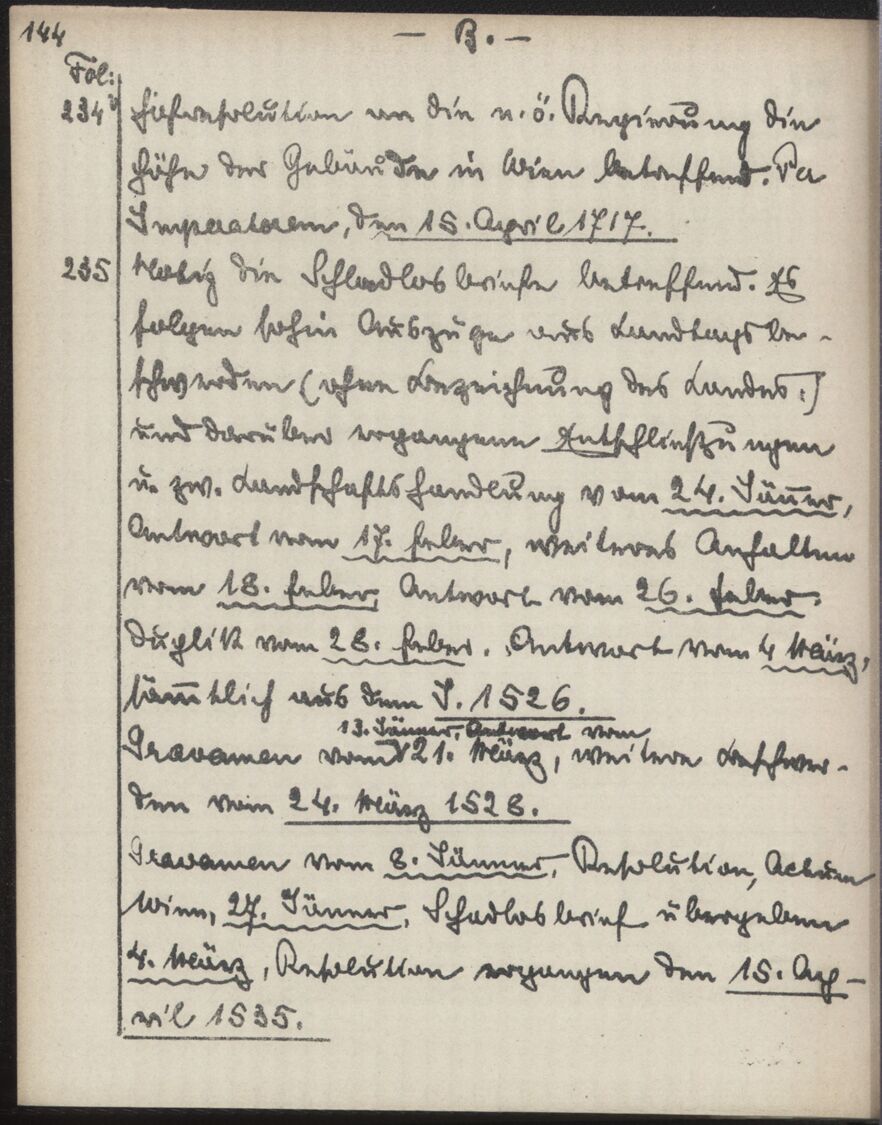 144
— B. —
Fol:
234v Hofresolution an die n. ö. Regierung die
Höhe der Gebäude in Wien betreffend. Per
Imperatorem, den 15. April 1717.
235 Notiz die Schadlosbriefe betreffend. Es
folgen sohin Auszüge aus Landtagsbe-
schwerden (ohne Bezeichnung des Landes:)
und darüber ergangene Entschließungen
u. zw. Landschaftshandlung vom 24. Jänner,
Antwort vom 17. Feber, weiteres Anhalten
vom 18. Feber, Antwort vom 26. Feber.
Duplik vom 28. Feber. Antwort vom 4 März,
sämtlich aus dem J. 1526.
13. Jänner, Antwort vom
Gravamen vom 21. März, weitere Beschwer-
den vom 24. März 1528.
Gravamen vom 8. Jänner, Resolution, Actum
Wien, 27. Jänner, Schadlosbrief übergeben
4. März, Resolution ergangen den 15. Ap-
ril 1535.